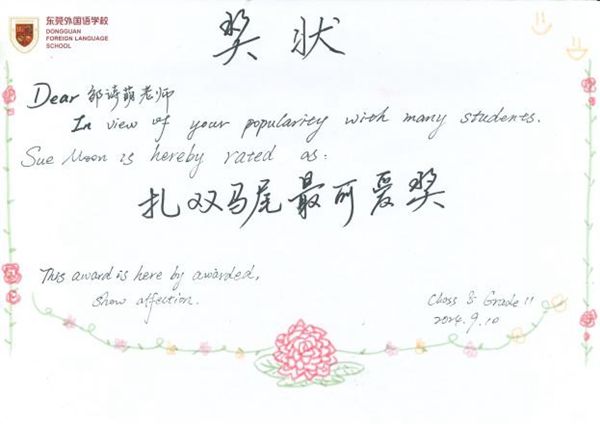 东莞外国语学校
DONGGUAN
FOREIGN LANGUAGE
SCHOOL
奖状
Dear 郭诗萌老师
In view of your popularity with many students.
Sue Moon is hereby rated as:
扎双马尾最可爱奖
This award is here by awarded,
show affection.
Class 8 Grade 11
2024.9.10